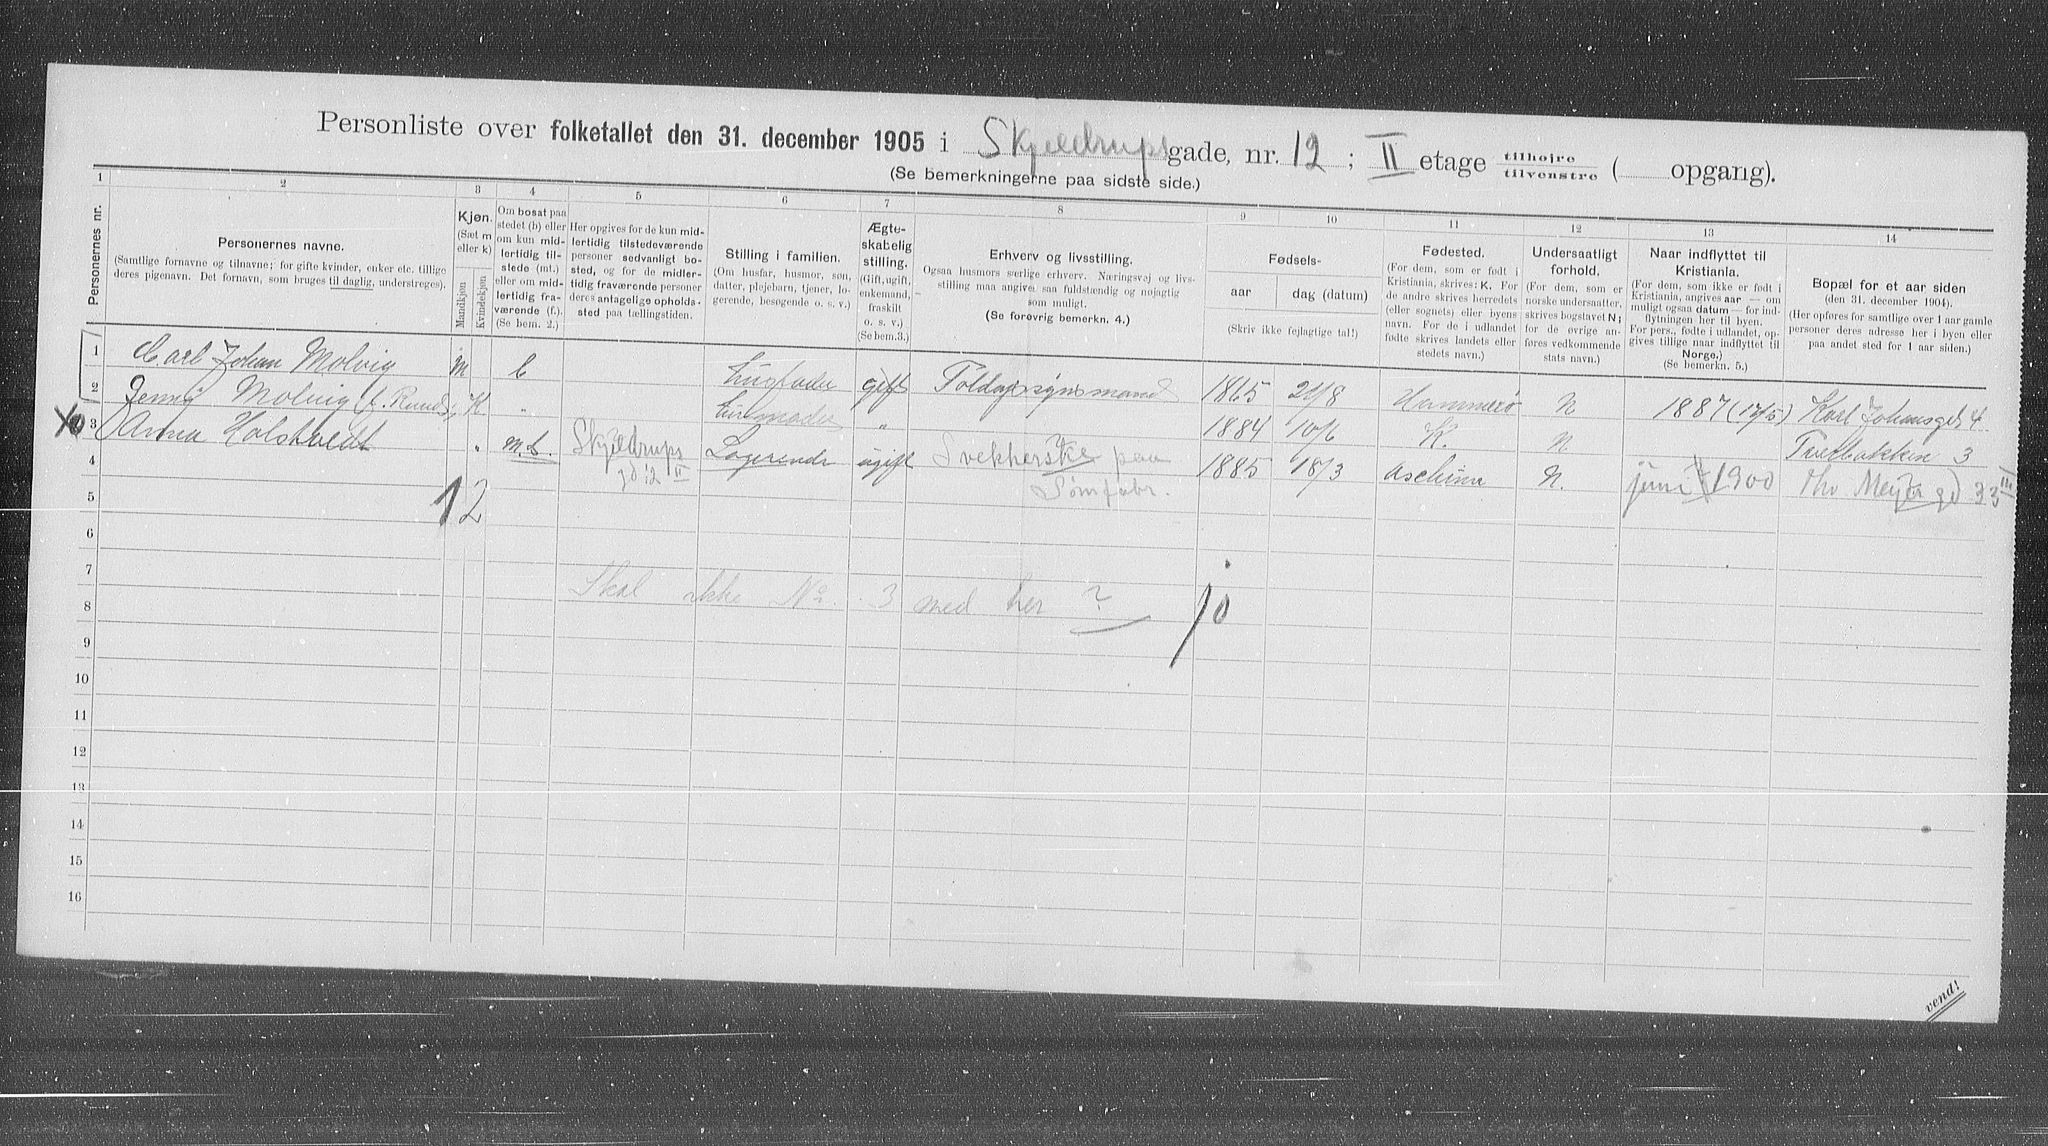 Personliste over folketallet den 31. december 1905 i Skjeldrups gade, nr. 12 ; II etage tilhøjre tilvenstre ( opgang).
(Se bemerkningerne paa sidste side.)
1 2 3 4 5 6 7 8 9 10 11 12 13 14
Personernes nr.
Personernes navne.
(Samtlige fornavne og tilnavne; for gifte kvinder, enker etc. tillige
deres pigenavn. Det fornavn, som bruges til daglig, understreges).
Kjøn.
(Sæt m
eller k)
Mandkjøn
Kvindekjøn
Om bosat paa
stedet (b) eller
om kun mid-
lertidig til-
stede (mt.)
eller om mid-
lertidig fra-
værende (f.).
(Se bem. 2.)
Her opgives for de kun mid-
lertidig tilstedeværende
personer sedvanligt bo-
sted, og for de midler-
tidig fraværende personer
deres antagelige opholds-
sted paa tællingstiden.
Stilling i familien.
(Om husfar, husmor, søn,
datter, plejebarn, tjener, lo-
gerende, besøgende o. s. v.)
Ægte-
skabelig
stilling.
(Gift, ugift,
enkemand,
fraskilt
o. s. v.)
(Se bem.3.)
Erhverv og livsstilling.
Ogsaa husmors særlige erhverv. Næringsvej og livs-
stilling maa angives saa fuldstændig og nøjagtig
som muligt.
(Se forøvrig bemerkn. 4.)
Fødsels-
aar
dag (datum)
(Skriv ikke fejlagtige tal!)
Fødested.
(For dem, som er født i
Kristiania, skrives: K. For
de andre skrives herredets
(eller sognets) eller byens
navn. For de i udlandet
fødte skrives landets eller
stedets navn.)
Undersaatligt
forhold.
(For dem, som er
norske undersaatter,
skrives bogstavet N;
for de øvrige an-
føres vedkommende
stats navn.)
Naar indflyttet til
Kristiania.
(For dem, som ikke er født i
Kristiania, angives aar — om
muligt ogsaa datum — for ind-
flytningen her til byen.
For pers., fødte i udlandet, op-
gives tillige naar indflyttet til
Norge.)
(Se bemerkn. 5.)
Bopæl for et aar siden
(den 31. december 1904).
(Her opføres for samtlige over 1 aar gamle
personer deres adresse her i byen eller
paa andet sted for 1 aar siden.)
1 Carl Johan Molvig m b Husfader gift Toldopsynsmand 1865 21/8 Hammerø N 1887 (17/5) Karl Johansgd 4
2 Jenni Molvig f. Ruud K " Husmoder " 1884 10/6 K. N Tvetbakken 3
3 Anna Holstvedt " m.t. Skjeldrups gd 12 II Logerende ugift Svekherske paa Sømfabr. 1885 18/3 Aschim N. juni 1900 Thv Meyer gd 33 III
4
5 12
6
7
8 Skal ikke No. 3 med her ? jo
9
10
11
12
13
14
15
16
vend!